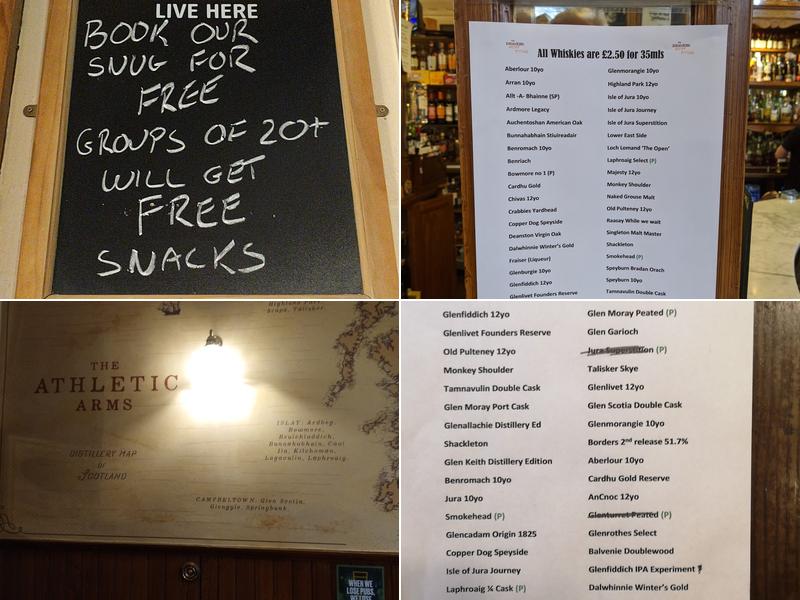 LIVE HERE
BOOK OUR
SNUG FOR
FREE
GROUPS OF 20+
WILL GET
FREE
SNACKS
All Whiskies are £2.50 for 35mls
Aberlour 10yo
Arran 10yo
Allt -A- Bhainne (SP)
Ardmore Legacy
Auchentoshan American Oak
Bunnahabhain Stiuireadair
Benromach 10yo
Benriach
Bowmore no 1 (P)
Cardhu Gold
Chivas 12yo
Crabbies Yardhead
Copper Dog Speyside
Deanston Virgin Oak
Dalwhinnie Winter's Gold
Fraiser (Liqueur)
Glenburgie 10yo
Glenfiddich 12yo
Glenlivet Founders Reserve
Glenmorangie 10yo
Highland Park 12yo
Isle of Jura 10yo
Isle of Jura Journey
Isle of Jura Superstition
Lower East Side
Loch Lomand 'The Open'
Laphroaig Select (P)
Majesty 12yo
Monkey Shoulder
Naked Grouse Malt
Old Pulteney 12yo
Raasay While we wait
Singleton Malt Master
Shackleton
Smokehead (P)
Speyburn Bradan Orach
Speyburn 10yo
Tamnavulin Double Cask
Highland Park,
Scapa, Talisker.
THE
ATHLETIC
ARMS
DISTILLERY MAP
OF
SCOTLAND
ISLAY: Ardbeg,
Bowmore,
Bruichladdich,
Bunnahabhain, Caol
Ila, Kilchoman,
Lagavulin, Laphroaig.
CAMPBELTOWN: Glen Scotia,
Glengyle, Springbank.
WHEN WE
LOSE PUBS,
WE LOSE
Glenfiddich 12yo
Glenlivet Founders Reserve
Old Pulteney 12yo
Monkey Shoulder
Tamnavulin Double Cask
Glen Moray Port Cask
Glenallachie Distillery Ed
Shackleton
Glen Keith Distillery Edition
Benromach 10yo
Jura 10yo
Smokehead (P)
Glencadam Origin 1825
Copper Dog Speyside
Isle of Jura Journey
Laphroaig ¼ Cask (P)
Glen Moray Peated (P)
Glen Garioch
Jura Superstition (P)
Talisker Skye
Glenlivet 12yo
Glen Scotia Double Cask
Glenmorangie 10yo
Borders 2nd release 51.7%
Aberlour 10yo
Cardhu Gold Reserve
AnCnoc 12yo
Glenturret Peated (P)
Glenrothes Select
Balvenie Doublewood
Glenfiddich IPA Experiment
Dalwhinnie Winter's Gold